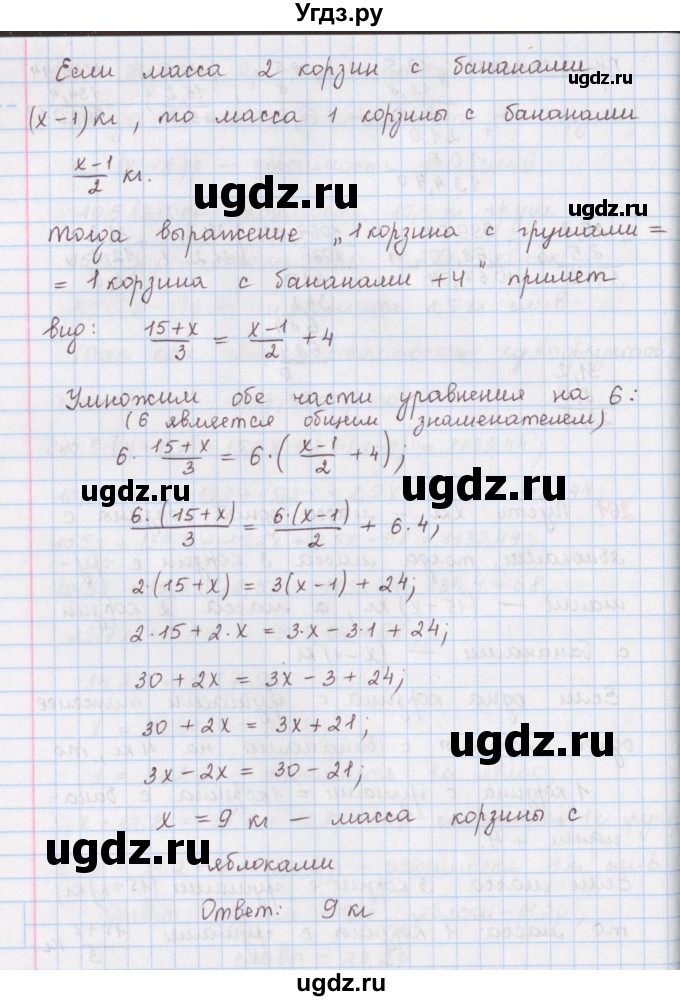 Угдз.ру
Если масса 2 корзин с бананами
(x-1) кг, то масса 1 корзины с бананами
(x-1)/2 кг.
тогда выражение „1 корзина с грушами =
= 1 корзина с бананами +4" примет
вид: (15+x)/3 = (x-1)/2 + 4
Умножим обе части уравнения на 6:
(6 является общим знаменателем)
6·(15+x)/3 = 6·((x-1)/2 + 4);
6·(15+x)/3 = 6·(x-1)/2 + 6·4;
2·(15+x) = 3(x-1) + 24;
2·15 + 2·x = 3·x - 3·1 + 24;
30 + 2x = 3x - 3 + 24;
30 + 2x = 3x + 21;
3x - 2x = 30 - 21;
x = 9 кг — масса корзины с
яблоками
Ответ: 9 кг
ugdz.ru
ugdz.ru
ugdz.ru
ugdz.ru
ugdz.ru
ugdz.ru
ugdz.ru
ugdz.ru
ugdz.ru